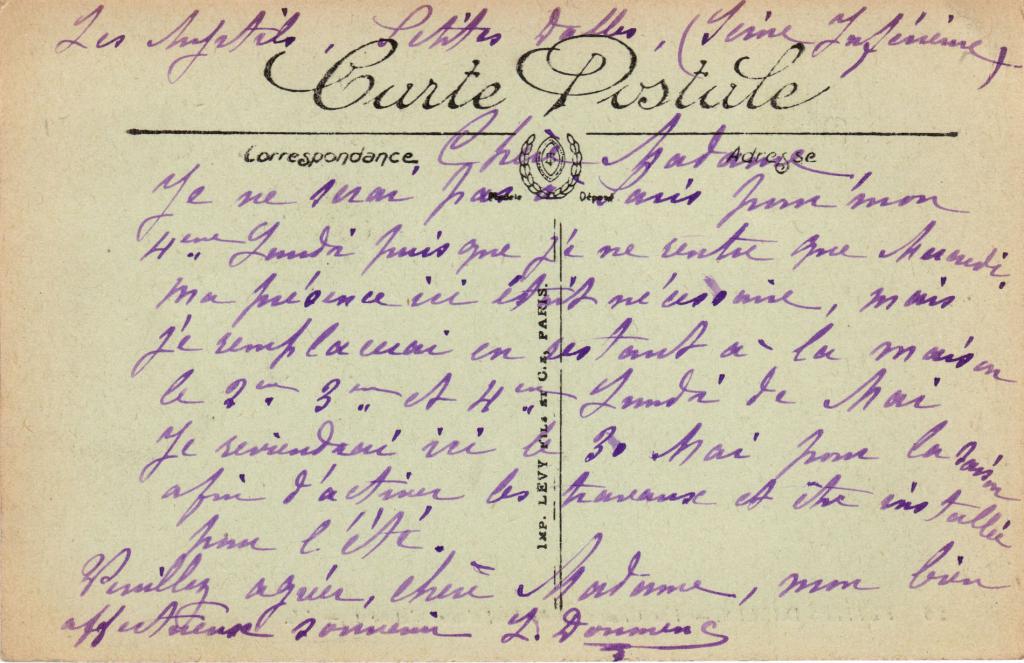 Les , Petites Dalles, (Seine Inférieure)
Carte Postale
Correspondance
Adresse
Modèle Déposé
Chère Madame
Je ne serai pas à Paris pour mon
4ème Lundi puisque je ne rentre que Mercredi,
ma présence ici était nécessaire, mais
je remplacerai en restant à la maison
le 2me 3me et 4me Lundi de Mai
Je reviendrai ici le 30 Mai pour la saison
afin d'activer les travaux et être installée
pour l'été.
Veuillez agréer, chère Madame, mon bien
affectueux souvenir L. Doumenc
IMP. LEVY FILS ET Cie, PARIS.